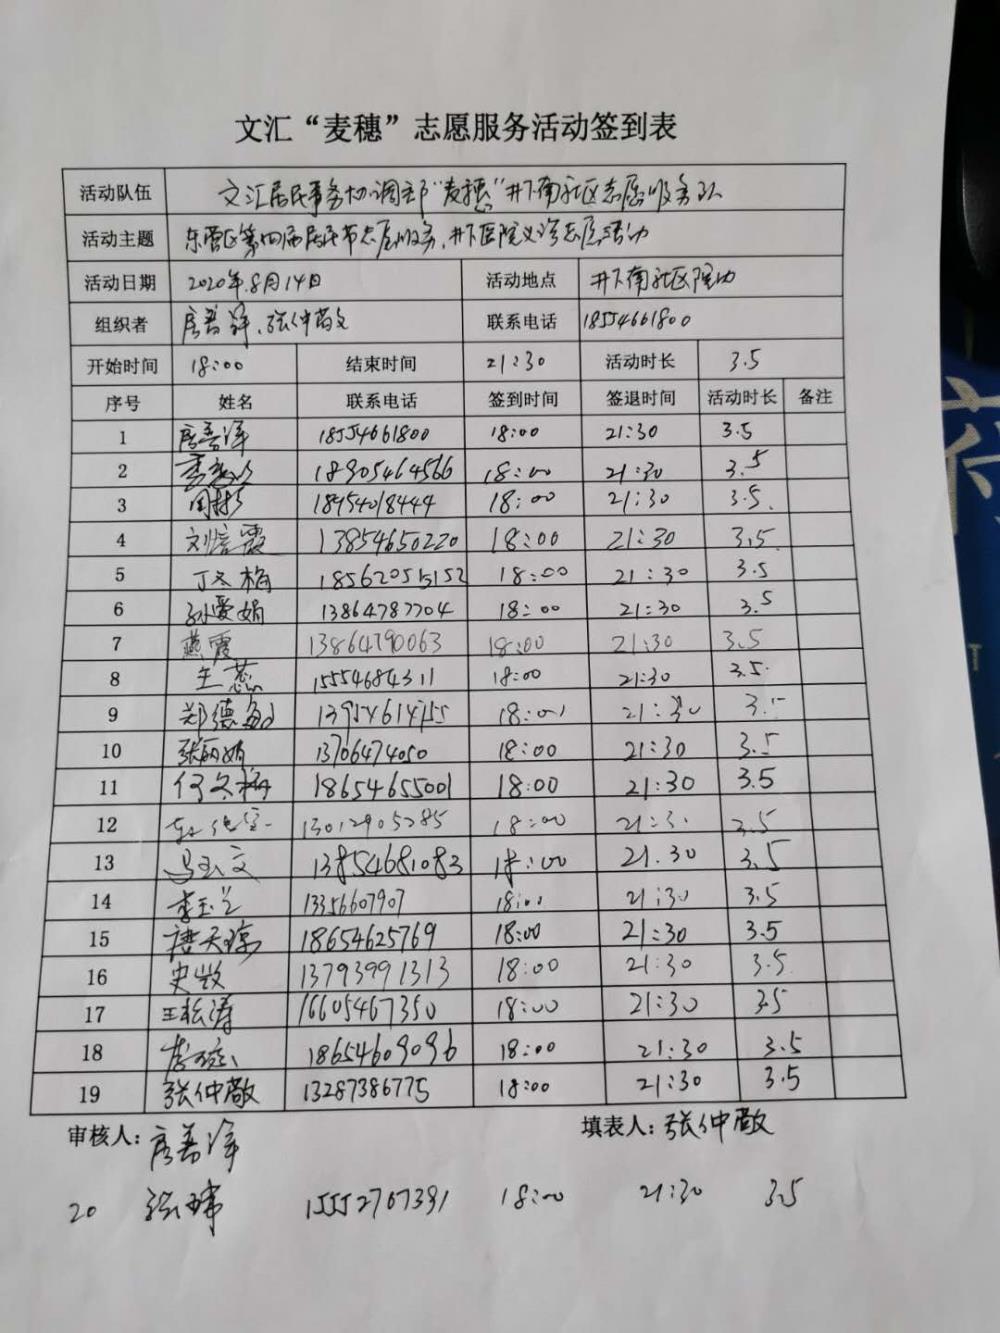 文汇“麦穗”志愿服务活动签到表
活动队伍 文汇居民事务协调部“麦穗”井下南社区志愿服务队
活动主题 东营区第四届居民节志愿服务,井下医院义诊志愿活动
活动日期 2020年.8月14日 活动地点 井下南社区院内
组织者 房善泽、张仲敬 联系电话 18554661800
开始时间 18:00 结束时间 21:30 活动时长 3.5
序号 姓名 联系电话 签到时间 签退时间 活动时长 备注
1 房善泽 18554661800 18:00 21:30 3.5
2 18905464566 18:00 21:30 3.5
3 周彬 18954018444 18:00 21:30 3.5
4 刘信霞 13854650220 18:00 21:30 3.5
5 丁冬梅 18562055152 18:00 21:30 3.5
6 孙爱娟 13864787704 18:00 21:30 3.5
7 燕霞 13864790063 18:00 21:30 3.5
8 王蕊 15554684311 18:00 21:30 3.5
9 郑德 18:00 21:30 3.5
10 张丽娟 13706474050 18:00 21:30 3.5
11 何冬梅 18654655001 18:00 21:30 3.5
12 13012905285 18:00 21:3. 3.5
13 马玉文 13854681083 18:00 21.30 3.5
14 李玉兰 13356607907 18:00 21:30 3.5
15 唐天琼 18654625769 18:00 21:30 3.5
16 史薇 13793991313 18:00 21:30 3.5
17 王松涛 16605467350 18:00 21:30 3.5
18 18654609096 18:00 21:30 3.5
19 张仲敬 13287386775 18:00 21:30 3.5
审核人: 房善泽 填表人: 张仲敬
20 张玮 15552707391 18:00 21:30 3.5